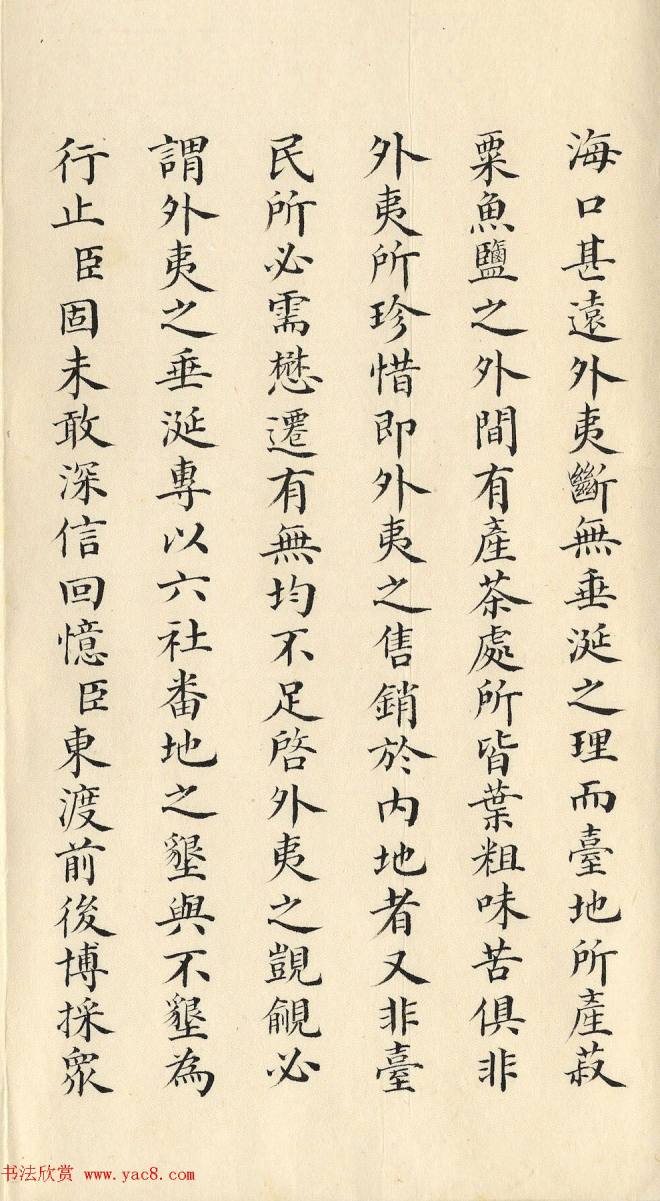 海口甚遠外夷斷無垂涎之理而臺地所產菽
粟魚鹽之外間有產茶處所皆葉粗味苦俱非
外夷所珍惜即外夷之售銷於內地者又非臺
民所必需懋遷有無均不足啓外夷之覬覦必
謂外夷之垂涎專以六社番地之墾與不墾為
行止臣固未敢深信回憶臣東渡前後博採眾
书法欣赏 www.yac8.com